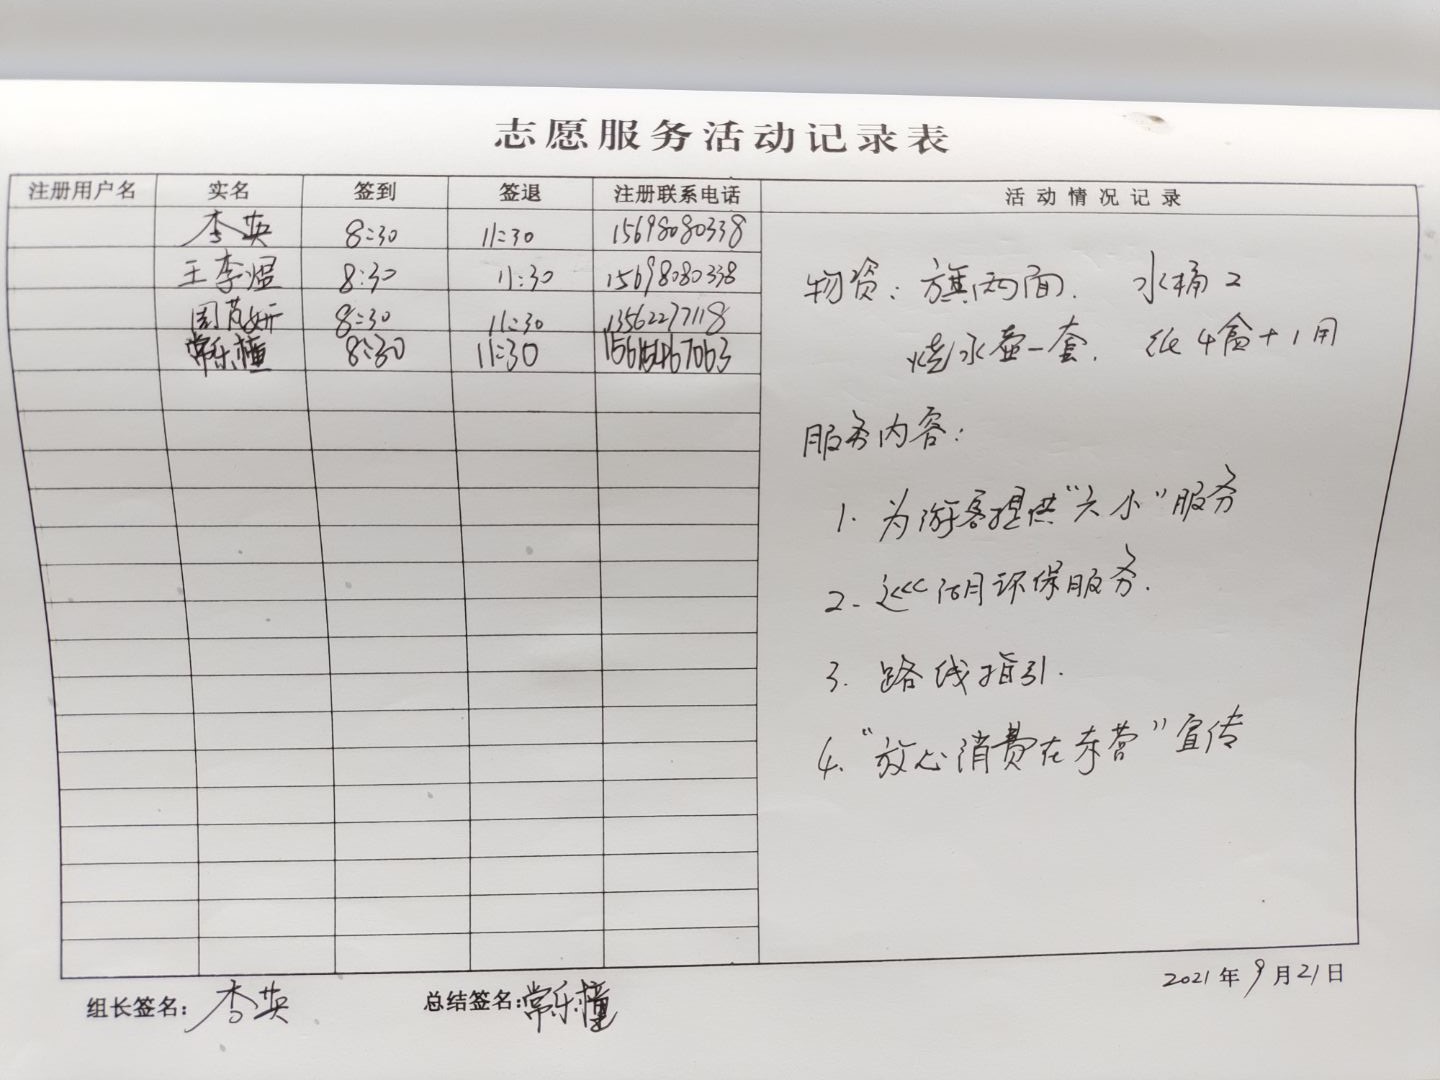 志愿服务活动记录表
注册用户名 实名 签到 签退 注册联系电话 活动情况记录
李英 8:30 11:30 15698080338
王李煜 8:30 11:30 15698080338
周芃妍 8:30 11:30 13562277118
常乐橦 8:30 11:30
物资: 旗两面. 水桶2
烧水壶一套. 纸4盒+1用
服务内容:
1. 为游客提供“六小”服务
2. 巡湖环保服务.
3. 路线指引.
4. “放心消费在东营”宣传
2021年9月21日
组长签名: 李英 总结签名: 常乐橦